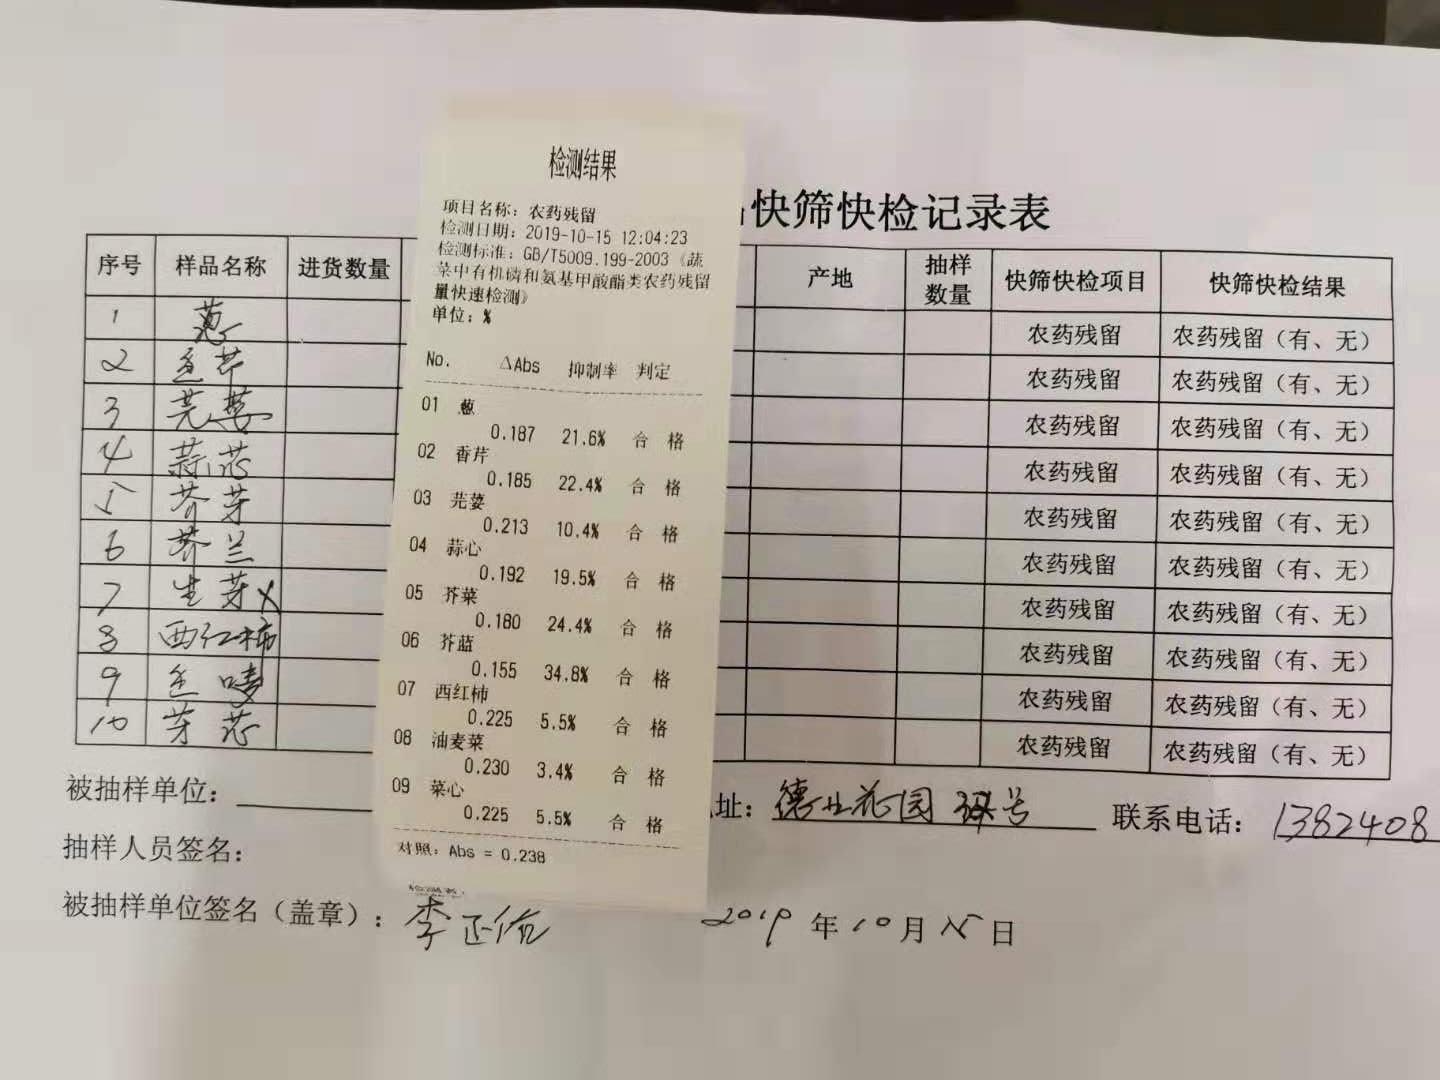 检测结果
项目名称：农药残留
检测日期：2019-10-15 12:04:23
检测标准：GB/T5009.199-2003《蔬
菜中有机磷和氨基甲酸酯类农药残留
量快速检测》
单位：%
No. △Abs 抑制率 判定
01 葱
0.187 21.6% 合格
02 香芹
0.185 22.4% 合格
03 芫荽
0.213 10.4% 合格
04 蒜心
0.192 19.5% 合格
05 芥菜
0.180 24.4% 合格
06 芥蓝
0.155 34.8% 合格
07 西红柿
0.225 5.5% 合格
08 油麦菜
0.230 3.4% 合格
09 菜心
0.225 5.5% 合格
对照：Abs = 0.238
快筛快检记录表
序号 样品名称 进货数量 产地 抽样数量 快筛快检项目 快筛快检结果
1 葱 农药残留 农药残留（有、无）
2 农药残留 农药残留（有、无）
3 芫荽 农药残留 农药残留（有、无）
4 蒜芯 农药残留 农药残留（有、无）
5 芥芽 农药残留 农药残留（有、无）
6 芥兰 农药残留 农药残留（有、无）
7 生芽 X 农药残留 农药残留（有、无）
8 西红柿 农药残留 农药残留（有、无）
9 农药残留 农药残留（有、无）
10 芽芯 农药残留 农药残留（有、无）
被抽样单位： 址：德业花园 号 联系电话：1382408
抽样人员签名：
被抽样单位签名（盖章）：李正 2019年10月15日